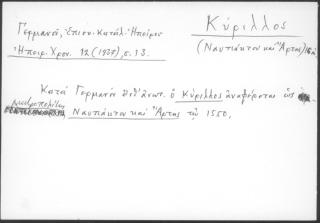 Γερμανοῦ, Ἐπισκ. Κατάλ. Ἠπείρου
Ἠπειρ. Χρον. 12 (1937), σ. 33.
Κύριλλος
(Ναυπάκτου καὶ Ἄρτας)
Κατὰ Γερμανὸ ὁ Κύριλλος ἀναφέρεται ὡς
μητροπολίτης Ναυπάκτου καὶ Ἄρτης τῷ 1550,